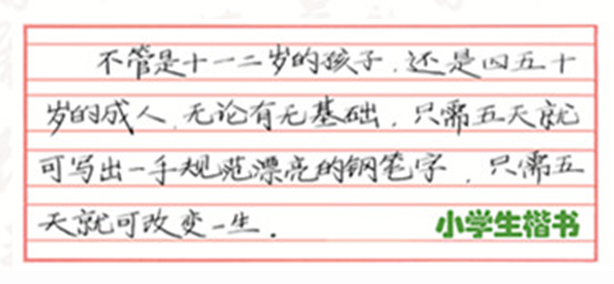 不管是十一二岁的孩子.还是四五十
岁的成人.无论有无基础.只需五天就
可写出一手规范漂亮的钢笔字.只需五
天就可改变一生.
小学生楷书